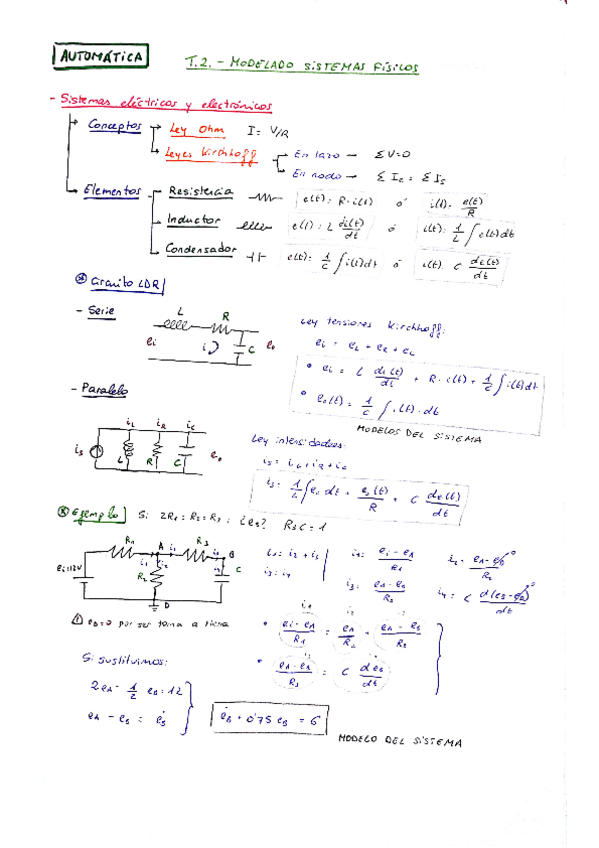 AUTOMÁTICA
T.2. - MODELADO SISTEMAS FÍSICOS
- Sistemas eléctricos y electrónicos
Conceptos
Ley Ohm I = V/R
Leyes Kirchhoff
En lazo → ΣV=0
En nodo →
Elementos
Resistencia e(t) = R·i(t) ó i(t) = e(t)/R
Inductor e(t) = L di(t)/dt ó i(t) = 1/L ∫e(t)dt
Condensador e(t) = 1/C ∫i(t)dt ó i(t) = C de(t)/dt
Circuito LDR
- Serie
L R
ei i C eo
Ley tensiones Kirchhoff:
ei = L di(t)/dt + R·i(t) + 1/C ∫i(t)dt
eo(t) = 1/C ∫i(t)·dt
MODELOS DEL SISTEMA
- Paralelo
iL iR iC
is L R C eo
Ley intensidades:
is = iL + iR + iC
is = 1/L ∫eo dt + eo(t)/R + C de(t)/dt
Ejemplo Si 2R1 = R2 = R3 ; ¿eB? R3C = 1
R1 A i3 R3 B
ei=12V i1 i2 R2 i4 C
D
i1 = i2 + i3
i3 = i4
i1 = ei - eA / R1
i2 = eA - eD / R2
i3 = eA - eB / R3
i4 = C d(eB - eD)/dt
eD=0 por ser toma a tierra
i1 i2 i3
ei - eA / R1 = eA / R2 + eA - eB / R3
eA - eB / R3 = C d eB / dt
Si sustituimos:
2eA - 1/2 eB = 12
eA - eB = ėB
ėB + 0'75 eB = 6
MODELO DEL SISTEMA